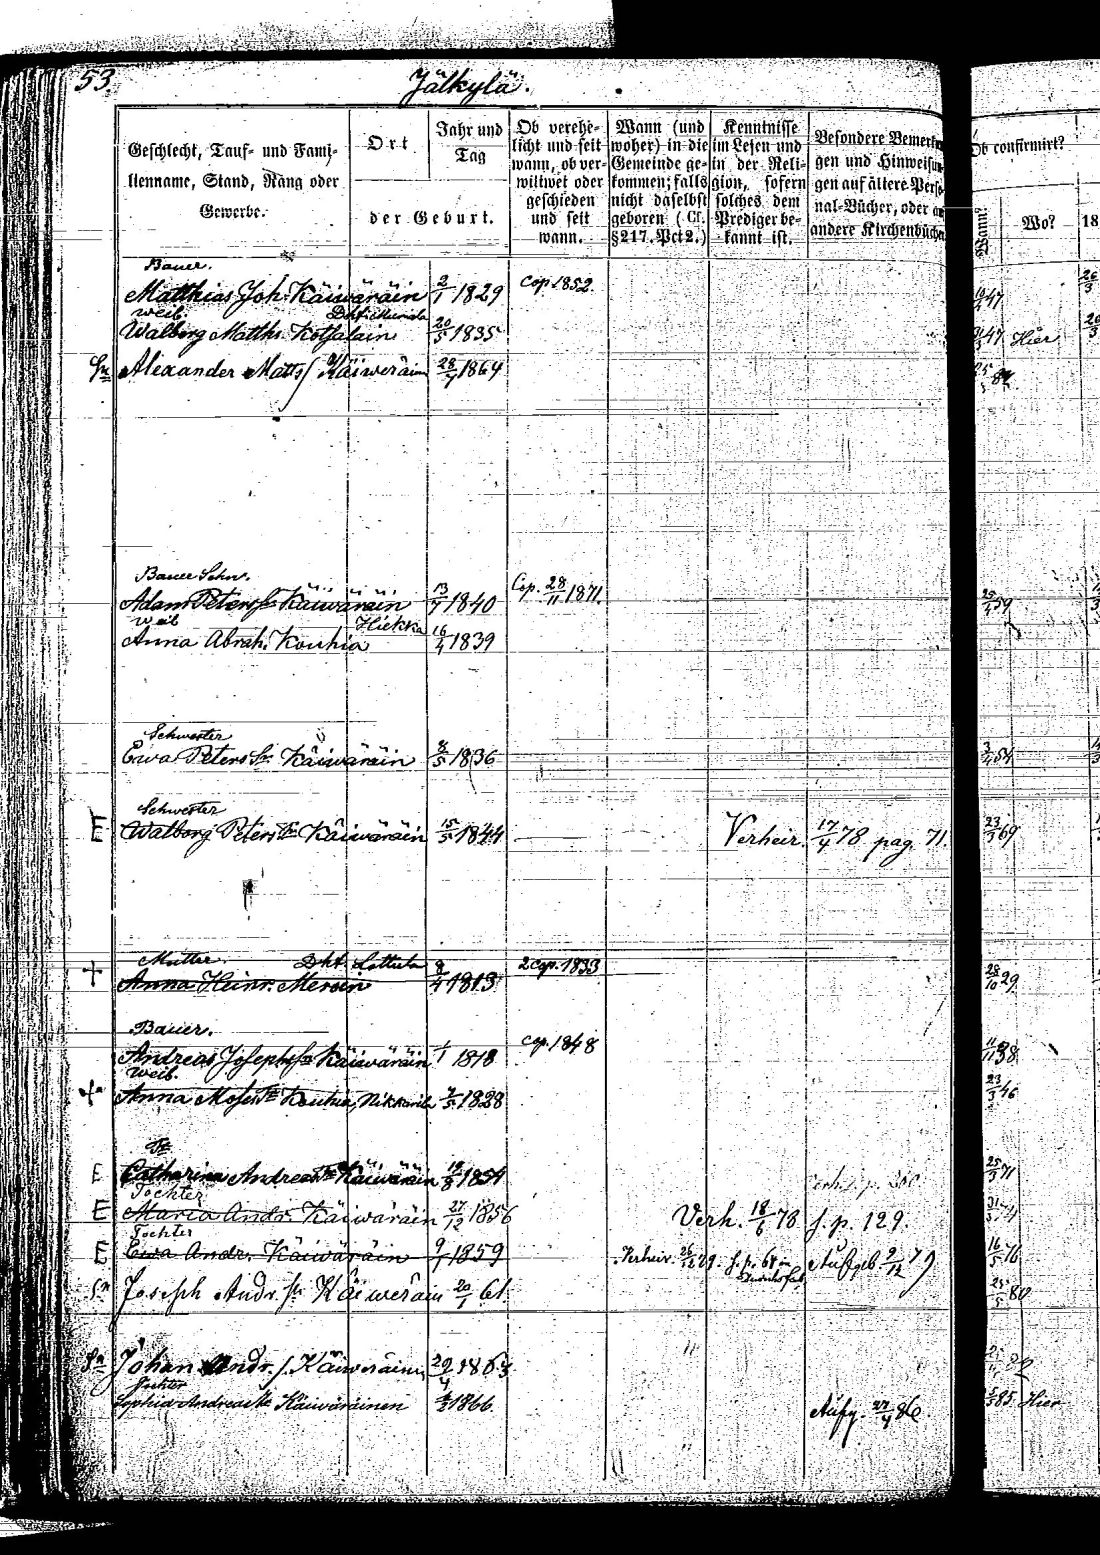 53.
Jälkylä.
Geschlecht, Tauf- und Fami-
lienname, Stand, Rang oder
Gewerbe.
Ort
Jahr und
Tag
der Geburt.
Ob verehe-
licht und seit
wann, ob ver-
wittwet oder
geschieden
und seit
wann.
Wann (und
woher) in die
Gemeinde ge-
kommen; falls
nicht daselbst
geboren (Cf.
§ 217. Pct 2.)
Kenntnisse
im Lesen und
in der Reli-
gion, sofern
solches dem
Prediger be-
kannt ist.
Besondere Bemerkun
gen und Hinweisun
gen auf ältere Perso
nal-Bücher, oder a
andere Kirchenbüche
Ob confirmirt?
Wann?
Wo?
18
Bauer.
Matthias Joh. Käiwäräin 2/1 1829 Cop. 1852
47
Weib
Walborg Matths. Kotsalain 20/5 1835
47 Hier
Sn Alexander Matts Käiweräin 28/7 1864
Bauer Sohn.
Adam Peters Sn Käiwäräin 13/7 1840 Cop. 28/11 1871
25/4 59
Weib Hiekka
Anna Abrah. Kouhia 16/4 1839
Schwester
Ewa Peters Käiwäräin 8/5 1836
3/4 54
Schwester
E Walborg Peters Käiwäräin 15/5 1844 Verheir. 17/4 78 pag. 71.
23/3 69
Mutter.
+ Anna Heinr. 1813 2 cop. 1833
28/10 29
Bauer.
Andreas Josephs Käiwäräin 1/1 1818 cop. 1848
38
Weib.
+ Anna Moses Kouhia, Nikkarila 1828
23/3 46
E Catharina Andreas Käiwäräin 1854
25/5 71
Tochter
E Maria Andr. Käiwäräin 27/12 1856 Verh. 18/6 78 s. p. 129.
Tochter
E Ewa Andr. Käiwäräin 9/7 1859 Verheir. 26/12 79. s. p. 68 Aufgeb 2/12 79
16/5 76
Sn Joseph Andr. Sn Käiweräin 20/1 61.
25/5 80
Sn Johan Andr. s. Käiweräinen 1863
Tochter
Sophia Andreas Käiwäräinen 1866 Aufg. 27/4 86
85 Hier